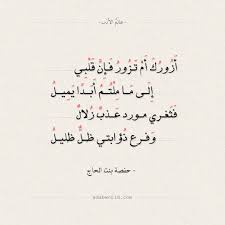 - عالم الأدب -
أَزُورُكَ أَمْ تَزُورُ فَإِنَّ قَلْبِي
إِلَى مَا مِلْتُمُ أَبَدًا يَمِيلُ
فَثَغْرِي مورد عَذبٌ زُلالٌ
وَفرع ذُؤابتي ظلٌّ ظليلُ
- حفصة بنت الحاج -